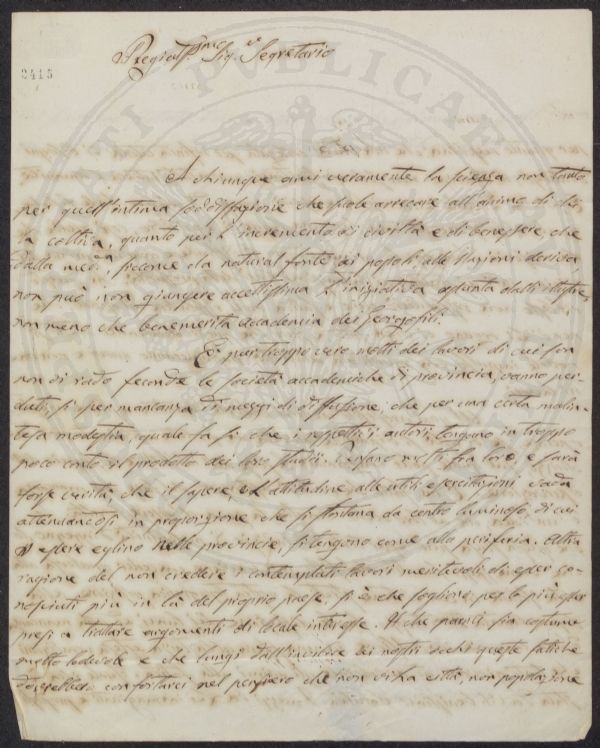 Pregiatssmo Sigr Segretario
2415
A chiunque ami veramente la scienza non tanto
per quell'intima soddisfazione che suole arrecare all'animo di chi
la coltiva, quanto per l'incremento di civiltà e di benessere che
dalla medma, siccome da natural fonte ai popoli alle Nazioni deriva
non può non giungere accettissima l'iniziativa assunta dall'illustre
non meno che benemerita accademia dei Georgofili.
È pur troppo vero molti dei lavori di cui son
non di rado feconde le società accademiche di provincia, vanno per-
duti, sì per mancanza di mezzi di diffusione, che per una certa malin-
tesa modestia, quale fa sì che i rispettivi autori, tengano in troppo
poco conto il prodotto dei loro studii. Pensano molti fra loro e sarà
forse verità, che il sapere, e l'attitudine alle utili esercitazioni vada
attenuandosi in proporzione che si slontana da centro luminoso, di cui
essere eglino nelle provincie, si tengono come alla periferia. Altra
ragione del non credere i contemplati lavori meritevoli di esser co-
nosciuti più in là del proprio paese, si è che sogliono per lo più esser
presi a trattare argomenti di locale interesse. Il che parmi sia costume
molto lodevole e che lungi dall'invilire ai nostri occhi queste fatiche
dovrebbero confortarci nel pensiero che non vi ha città, non popolazione